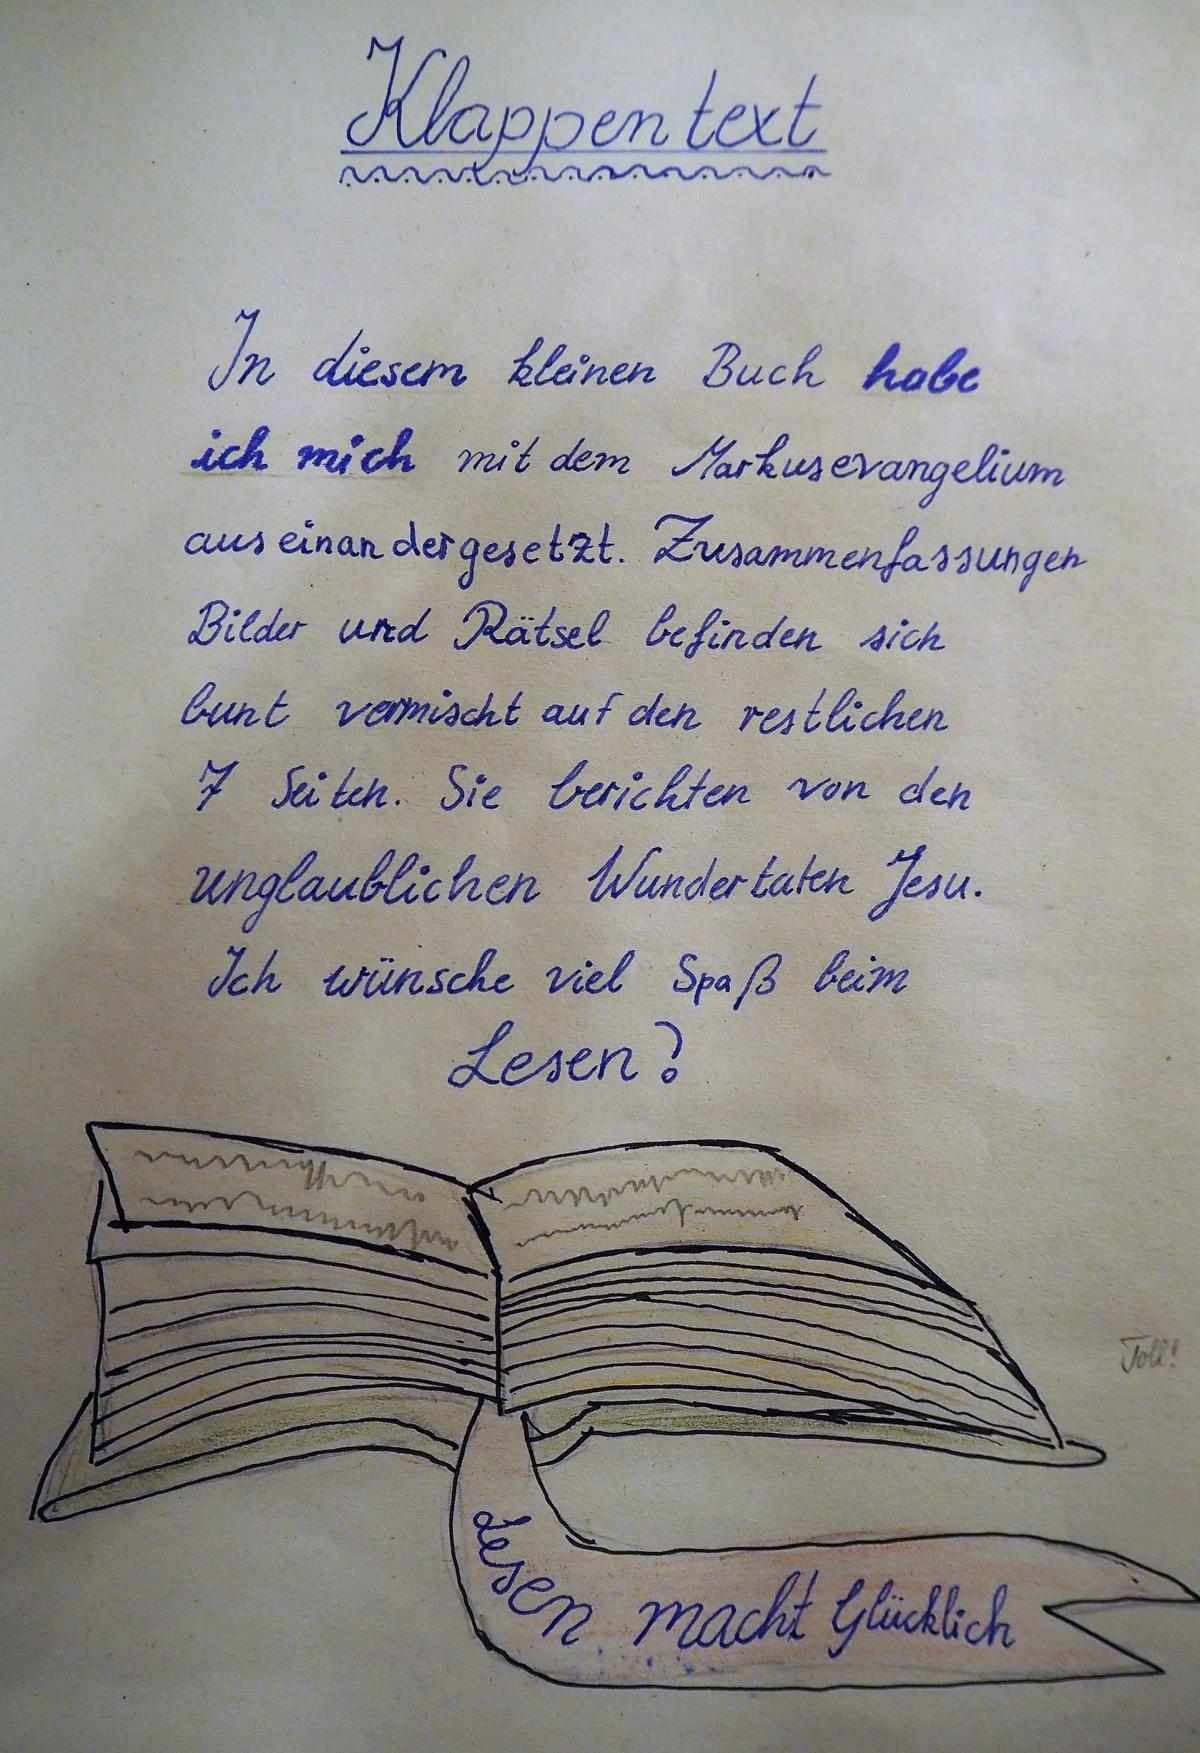 Klappentext
In diesem kleinen Buch habe
ich mich mit dem Markusevangelium
auseinandergesetzt. Zusammenfassungen
Bilder und Rätsel befinden sich
bunt vermischt auf den restlichen
7 Seiten. Sie berichten von den
unglaublichen Wundertaten Jesu.
Ich wünsche viel Spaß beim
Lesen?
Toll!
Lesen macht Glücklich